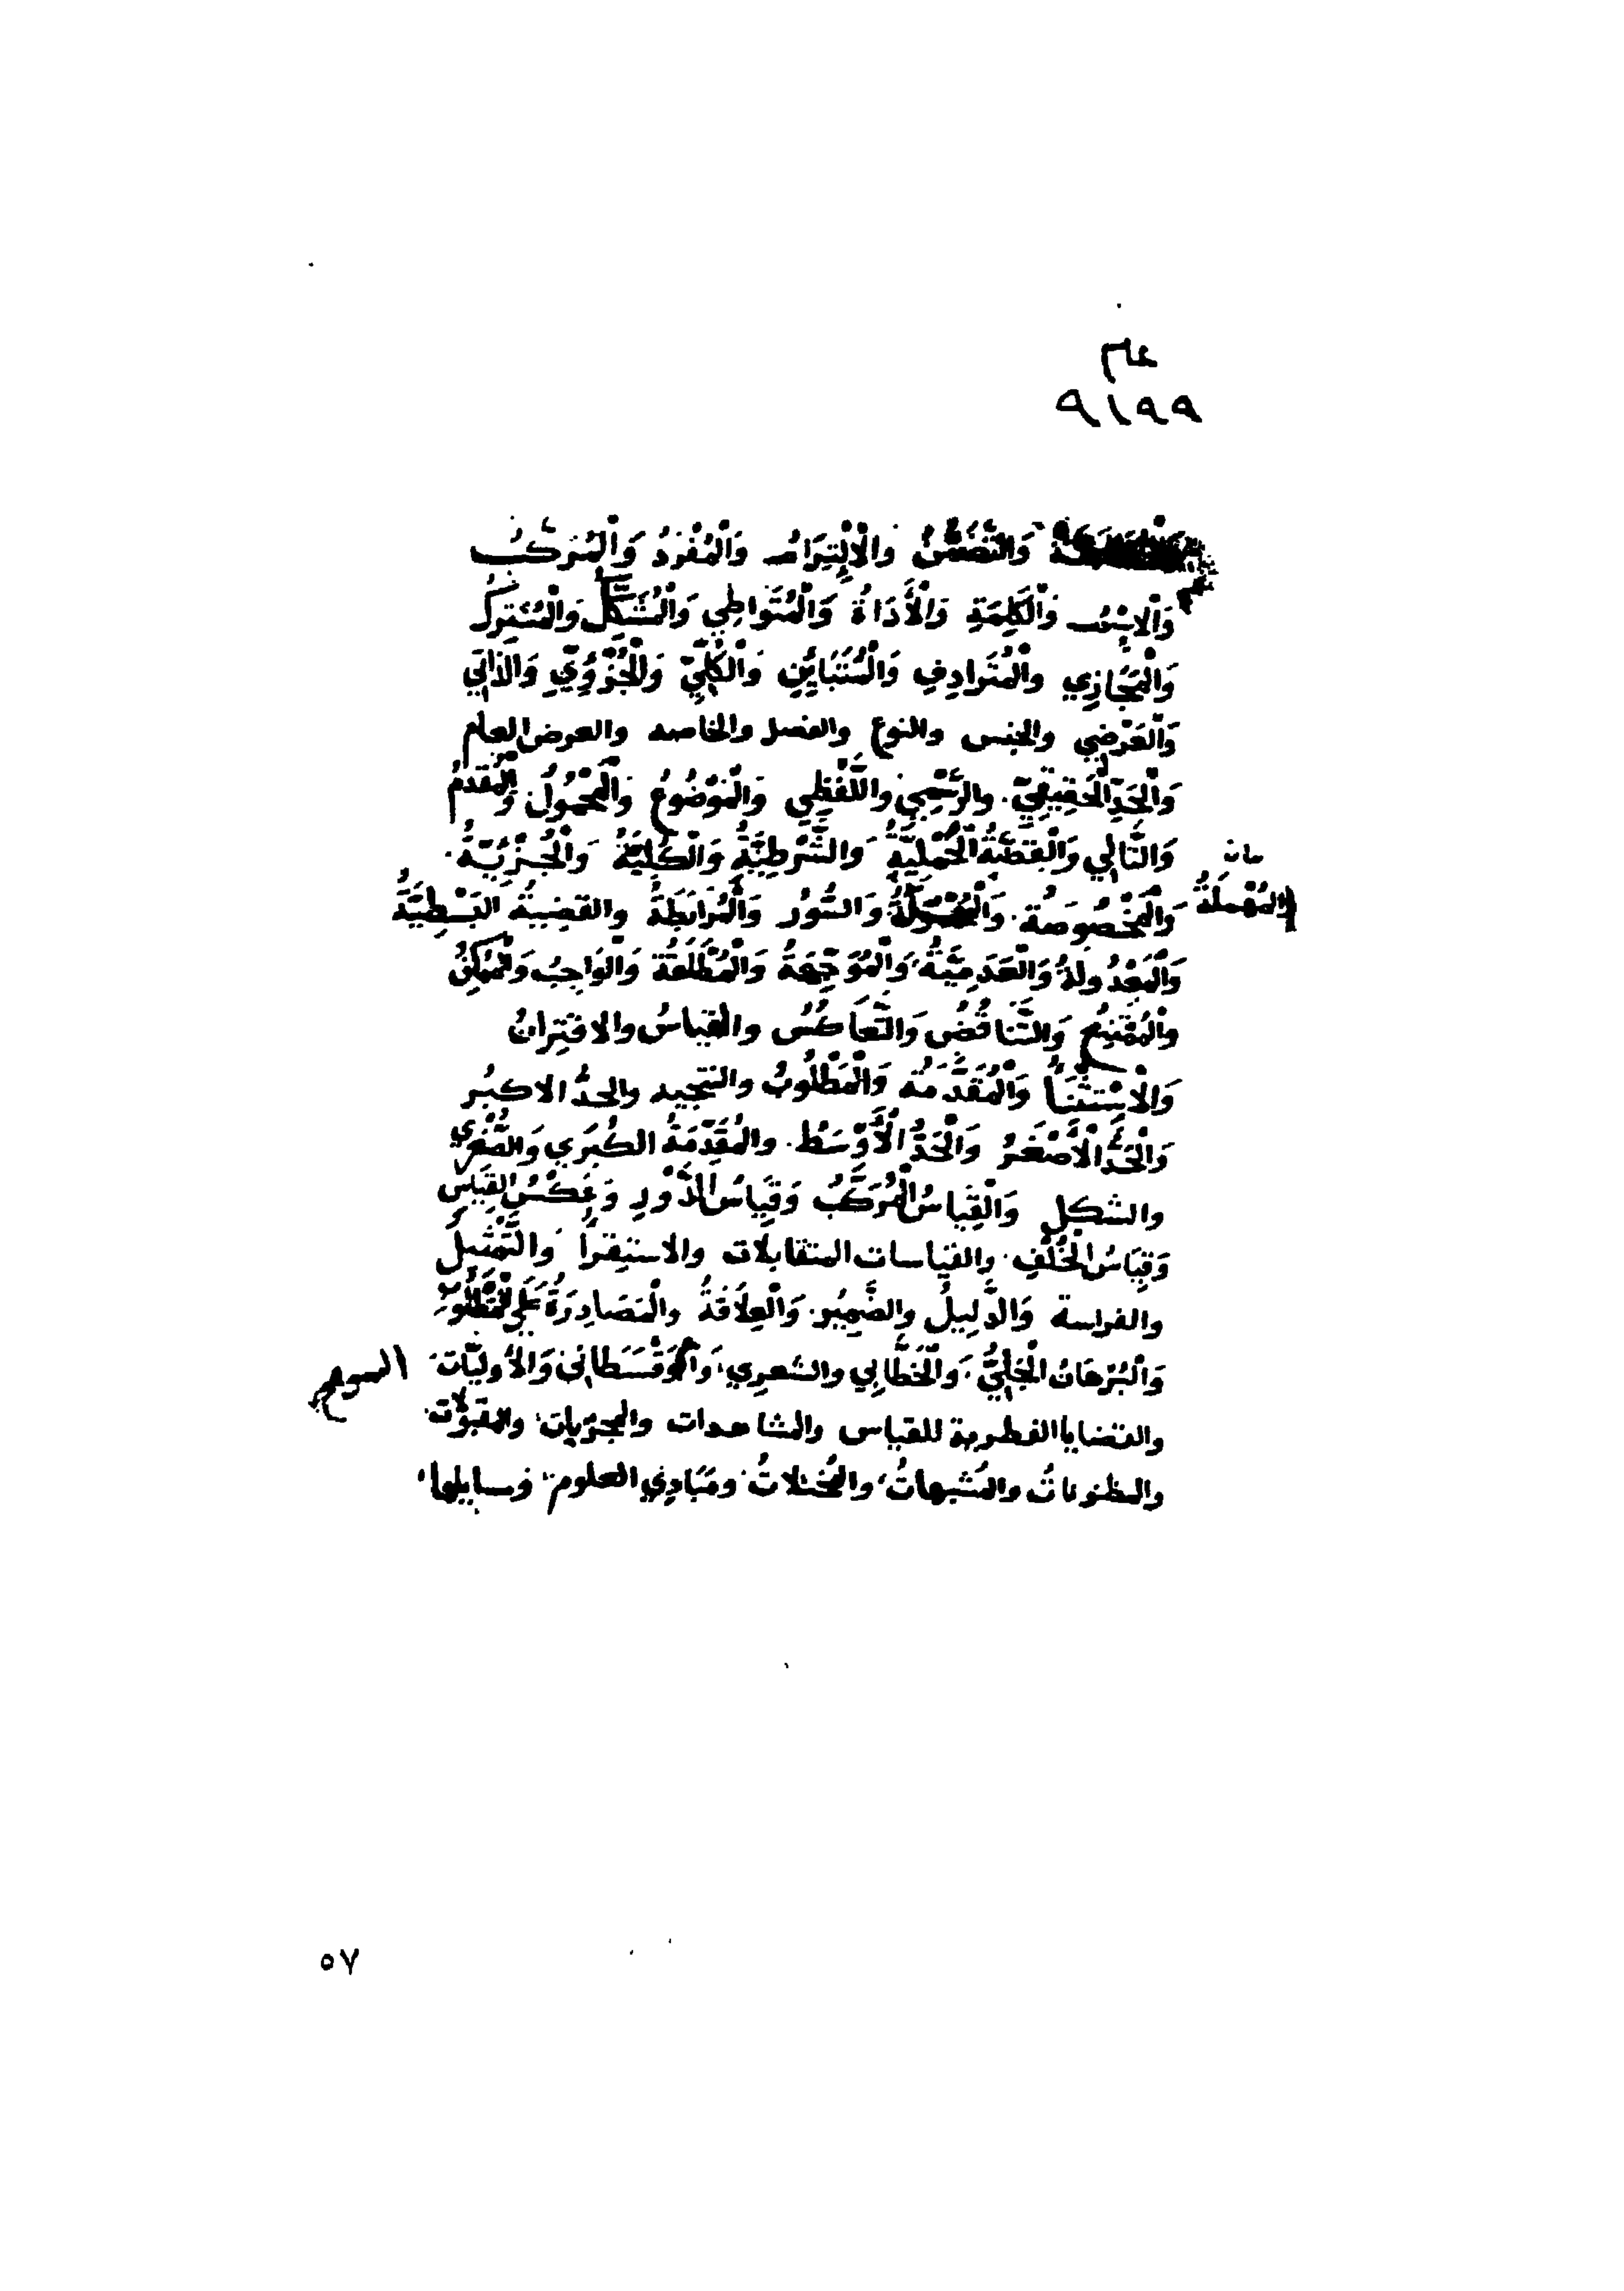 ٩١٩٩
وَالتَّضَمُّنُ وَالْاِلْتِزَامُ وَالْمُفْرَدُ وَالْمُرَكَّبُ
وَالاِسْمُ وَالْكَلِمَةِ وَالْأَدَاةُ وَالْمُتَوَاطِي وَالْمُشَكِّكُ وَالْمُشْتَرِكُ
وَالْمَجَازِي وَالْمُتَرَادِفِ وَالْمُتَبَايِنِ وَالْكُلِّيِّ وَالْجُزْوِيِّ وَالذَّاتِي
وَالْعَرَضِي والجنس والنوع والفصل والخاصه والعرض العام
وَالْحَدِّ الْحَقِيقِيِّ والرَّسْمِي واللَّفْظِي وَالْمَوْضُوعُ وَالْمَحْمُولُ وَالْمُقَدَّمُ
وَالتَّالِي وَالْقَضِيَّةُ الْحَمْلِيَّةُ وَالشَّرْطِيَّةُ وَالْكُلِّيَّةُ وَالْجُزْئِيَّةُ
وَالْمُهْمَلَةُ وَالْمَخْصُوصَةُ وَالسُّوْرُ وَالْرَابِطَةُ والقضيةُ البَسْطِيَّةُ
وَالْمَعْدُولةُ وَالْعَدَمِيَّةُ وَالْمُوَجِّهَةُ وَالْمُطْلَقَةُ وَالْوَاجِبُ وَالْمُمْكِنُ
وَالْمُمْتَنِعُ وَالتَّنَاقُضُ وَالتَّعَاكُسُ والقياسُ والاقتِرانُ
وَالْاِسْتِثْنَاُ وَالْمُقَدَّمَةُ وَالْمَطْلُوبُ والنتيجه والحدُّ الاكبُر
وَالْحَدُّ الْأَصْغَرُ وَالْحَدُّ الْأَوْسَطُ والمُقَدِّمَةُ الكُبرَي وَالصُّغرَي
والشكل وَالْقِيَاسُ الْمُرَكَّبُ وَقِيَاسُ الدَّوْرِ وَعَكْسُ القِيَاسِ
وَقِيَاسُ الْخُلْفِ والقياسات المتقابلات والاستقراُ وَالتَّمْثِيلُ
والفراسة وَالدَّلِيلُ والضَّمِيُر وَالْعِلَاقةُ وَالْمَصَادِرَةُ عَلَى الْمَطْلُوبِ
وَالْبُرْهَانُ الْجَدَلِيُّ وَالْخَطَّابِي والشعرِي وَالأَوليَّات
والقضايا الفطرية للقياس والمشاهدات والمجرّبات والمقبولات
والمظنوناتُ والمُشبهاتُ والمُخيّلاتُ ومَبَادِي العلوم ومسايلها
٥٧